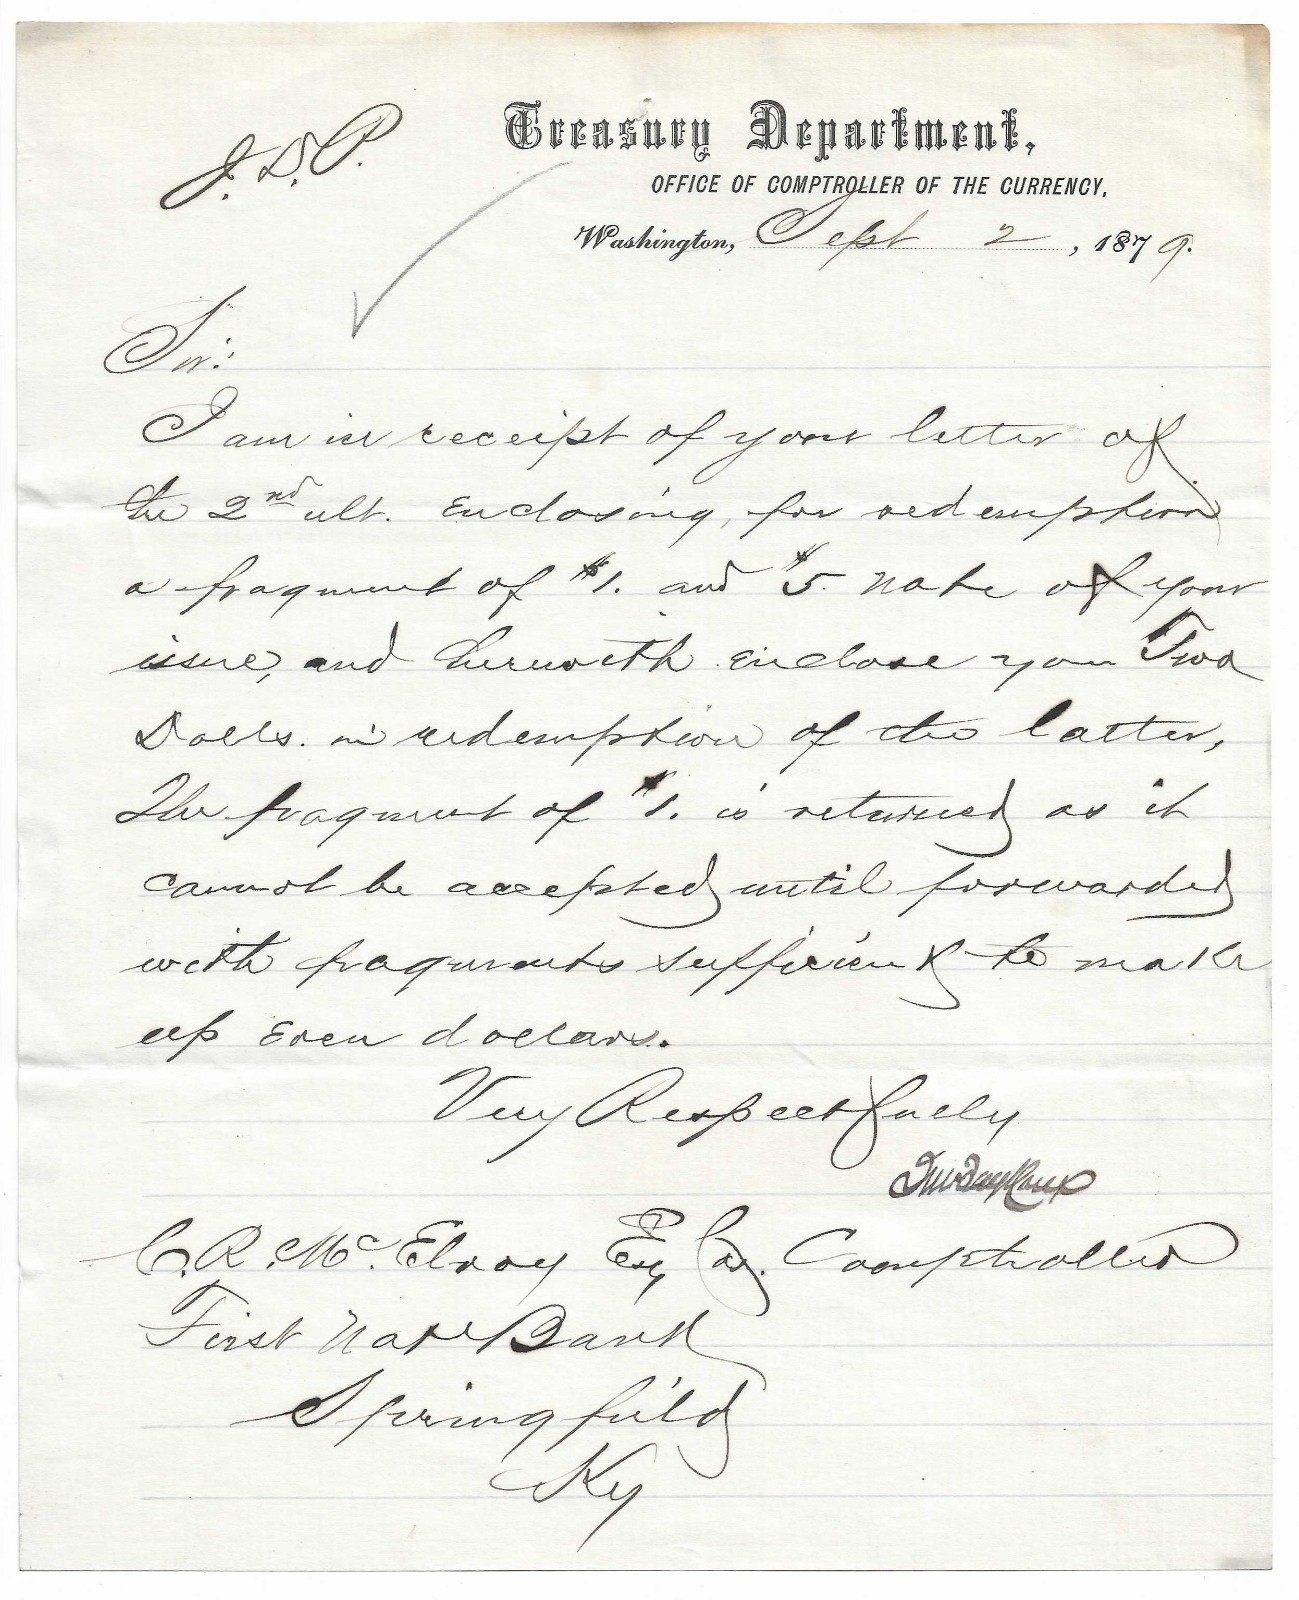 J.D.P.
Treasury Department,
OFFICE OF COMPTROLLER OF THE CURRENCY,
Washington, Sept 2, 1879.
Sir:
I am in receipt of your letter of
the 2nd ult. enclosing, for redemption
a fragment of $1. and $5. note of your
issue, and herewith enclose you Two
Dolls. in redemption of the latter,
The fragment of $1. is returned as it
cannot be accepted until forwarded
with fragments sufficient to make
up even dollars.
Very Respectfully
Jno Jay Knox
C. R. Mc. Elroy Esq Cas. Comptroller
First Natl Bank
Springfield
Ky